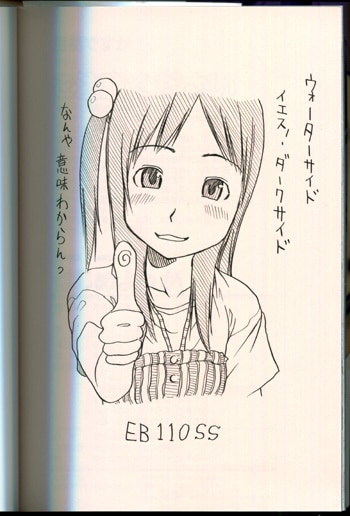 ウォーターサイド
イエス！・ダークサイド
なんや 意味わからんっ
EB110SS